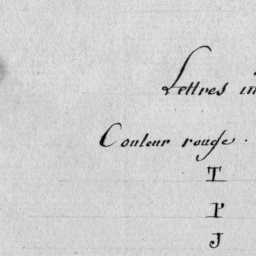 Lettres in
Couleur rouge.
T
P
J